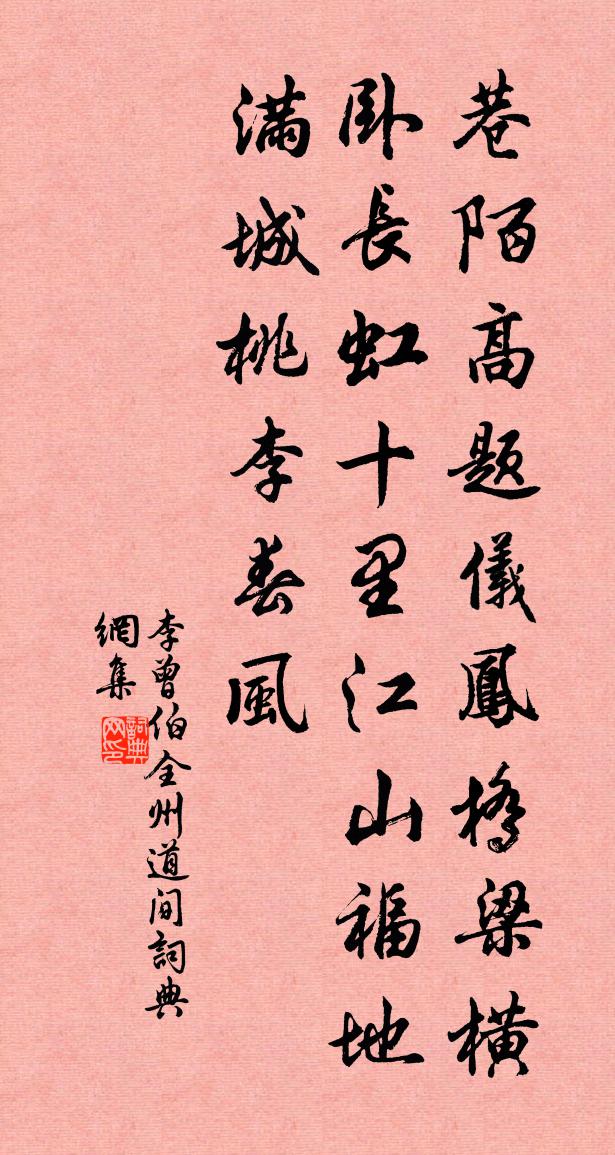 巷陌高題儀鳳橋梁橫
卧長虹十里江山福地
滿城桃李春風
李曾伯全州道間詞典
網集
詞典網印